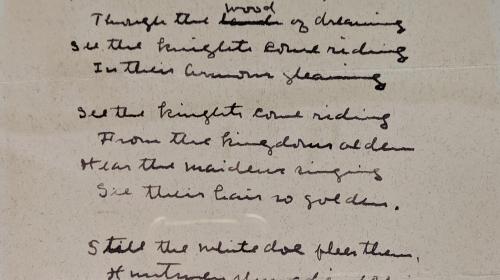 wood
Through the land of dreaming
See the knights come riding
In their armour gleaming
See the knights come riding
From the kingdoms olden
Hear the maidens singing
See their hair so golden.
Still the white doe flees them,